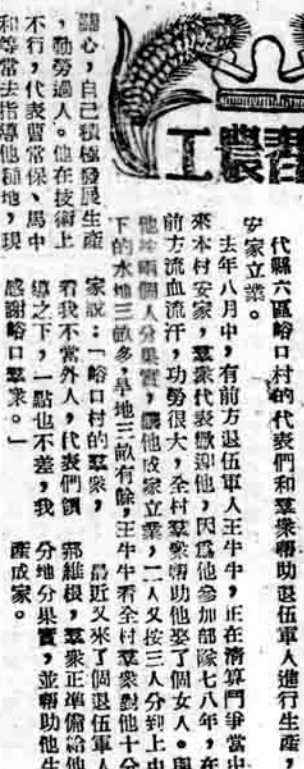 農工
代縣六區峪口村的代表們和羣衆幫助退伍軍人進行生產，
安家立業。
去年八月中，有前方退伍軍人王牛牛，正在清算鬥爭當中
來本村安家，羣衆代表歡迎他，因爲他參加部隊七八年，在
前方流血流汗，功勞很大，全村羣衆幫助他娶了個女人。與
他按兩個人分果實，讓他成家立業，二人又按三人分到上中
下的水地三畝多，旱地三畝有餘，王牛牛看全村羣衆對他十分
關心，自己積極發展生產
，勤勞過人。他在技術上
不行，代表曹常保、馬中
和等常去指導他種地，現
家說：「峪口村的羣衆，
看我不當外人，代表們領
導之下，一點也不差，我
感謝峪口羣衆。」
最近又來了個退伍軍人
維根，羣衆正準備給他
分地分果實，並幫助他生
產成家。